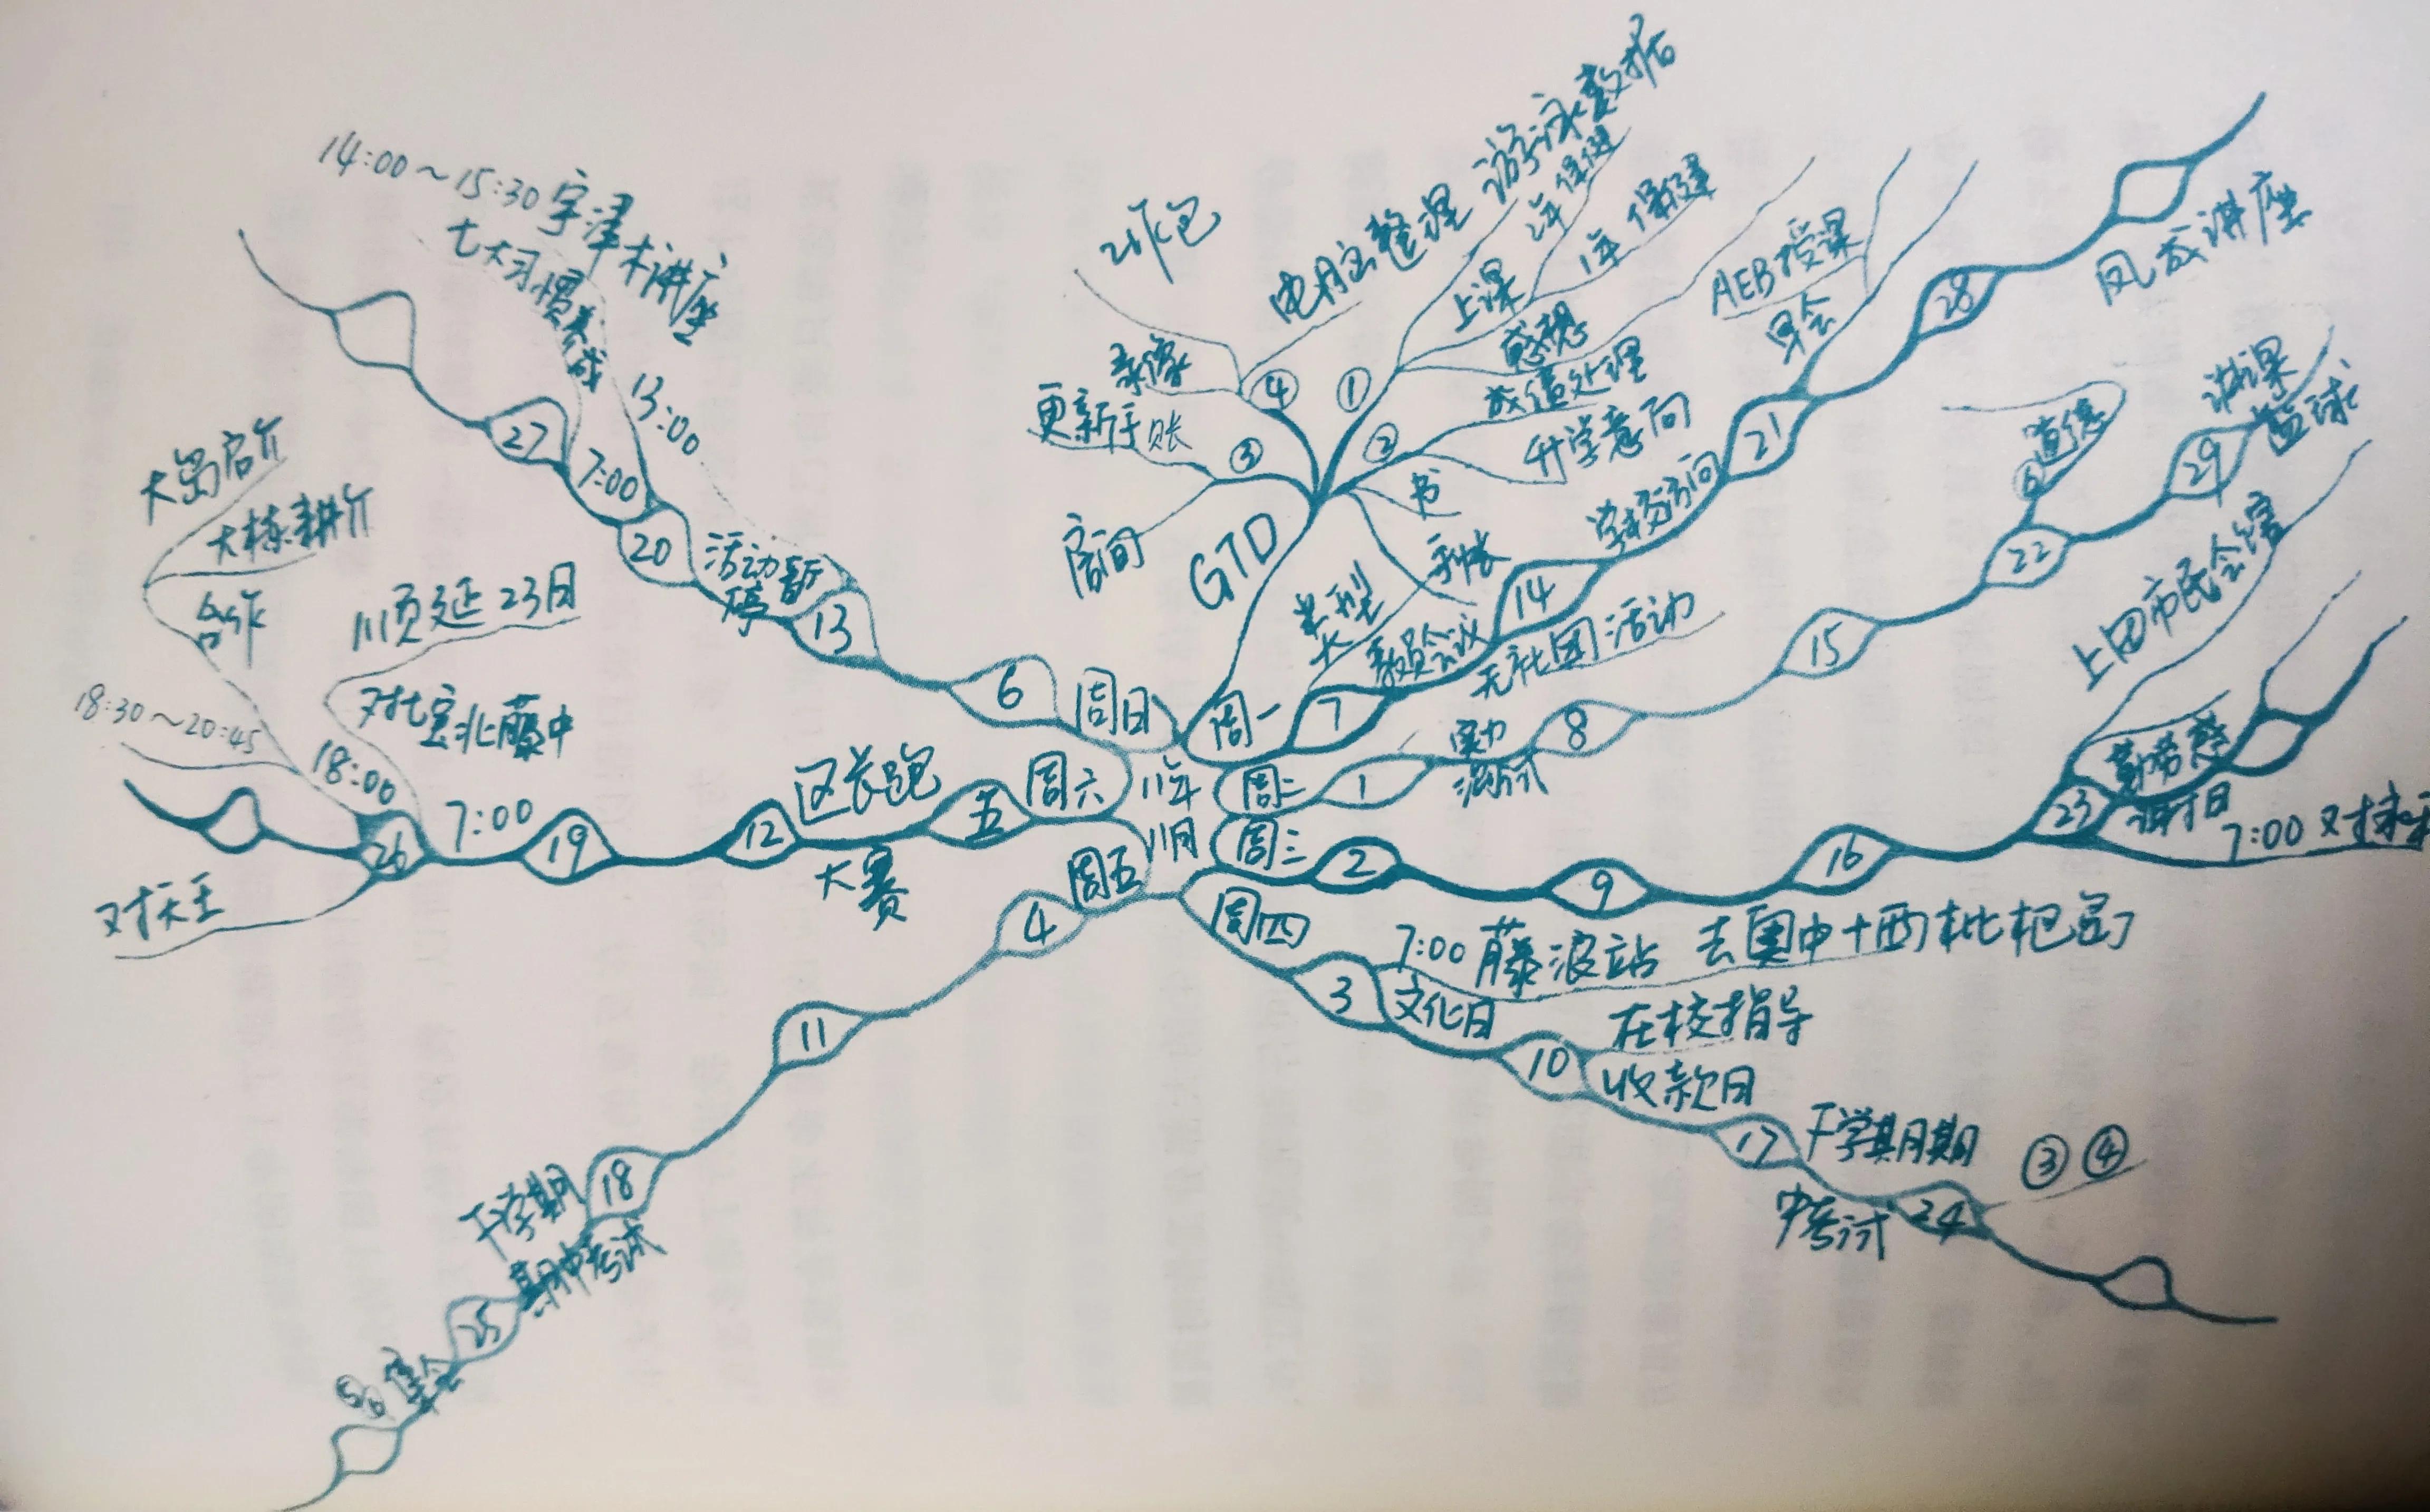 11年
11月
周一
7
教员会议
无社团活动
14
学校访问
21
早会
AEB授课
28
风成讲座
GTD
①
上课
1年 保健
2年 保健
感想
游泳数据
②
成绩处理
升学意向
书
手帐
类型
大
③
更新手账
房间
④
电脑整理
录像
周二
1
实力
测试
8
15
22
⑥
道德
29
讲课
篮球
周三
2
9
16
23
勤劳感
谢日
上田市民会馆
7:00 对
周四
3
文化日
7:00 藤波站 去奥中+西枇杷岛
10
在校指导
收款日
17
下学期期
中考试
24
③ ④
周五
4
11
18
下学期
期中考试
25
⑤⑥
周六
五
12
区长跑
大赛
19
26
7:00
对宝北藤中
顺延23日
18:00
18:30~20:45
合作
大栋耕介
大岛启介
对天王
周日
6
13
活动暂
停
13:00
20
7:00
27
七大习惯养成
14:00~15:30 宇津木讲座